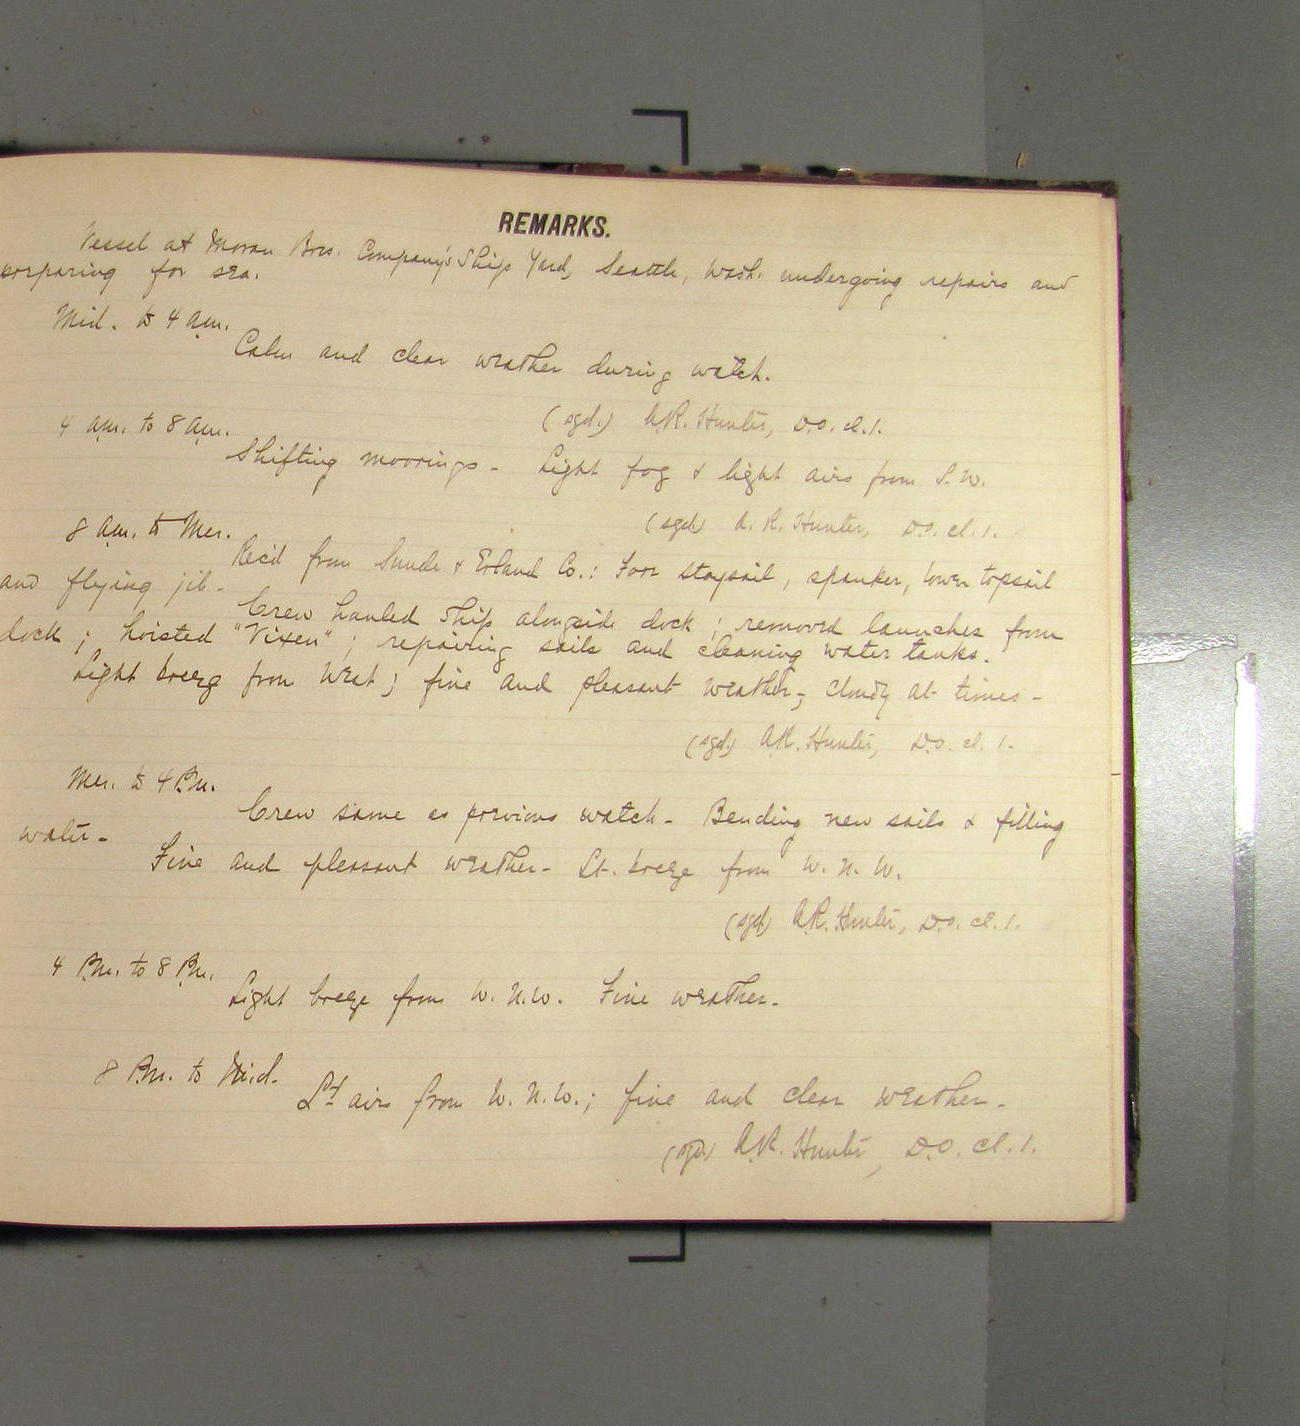 REMARKS.
Vessel at Moran Bros. Company's Ship Yard, Seattle, Wash. undergoing repairs and
preparing for sea.
Mid. to 4 a.m.
Calm and clear weather during watch.
(sgd.) A.R. Hunter, D.O. cl. 1.
4 a.m. to 8 a.m.
Shifting moorings - Light fog & light airs from S.W.
(sgd) A. R. Hunter, D.O. cl. 1.
8 a.m. to Mer.
Rec'd from Sunde & Erland Co.: Fore staysail, spanker, lower topsail
and flying jib -
Crew hauled ship alongside dock; removed launches from
dock; hoisted "Vixen"; repairing sails and cleaning water tanks.
Light breeze from West; fine and pleasant weather; cloudy at times -
(sgd.) A.R. Hunter, D.O. cl. 1.
Mer. to 4 P.m.
Crew same as previous watch - Bending new sails & filling
water -
Fine and pleasant weather - Lt. breeze from W. N. W.
(sgd) A.R. Hunter, D.O. cl. 1.
4 P.m. to 8 P.m.
Light breeze from W. N.W. Fine weather -
8 P.m. to Mid.
Lt airs from W. N.W.; fine and clear weather -
(sgd) A.R. Hunter, D.O. cl. 1.